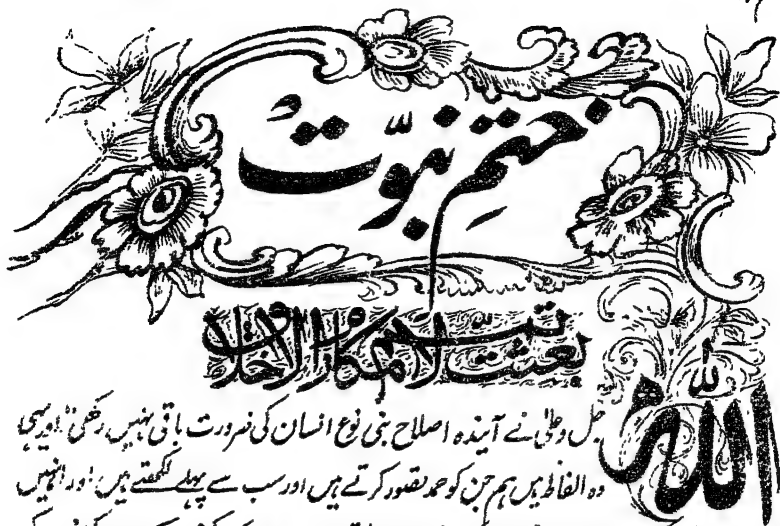 ختمِ نبوّت
بعثت لاتمم مکارم الاخلاق
اللہ جل وعلیٰ نے آیندہ اصلاح بنی نوع انسان کی ضرورت باقی نہیں رکھی اور یہی
وہ الفاظ ہیں ہم جن کو حمد تصور کرتے ہیں اور سب سے پہلے لکھتے ہیں اور انہیں